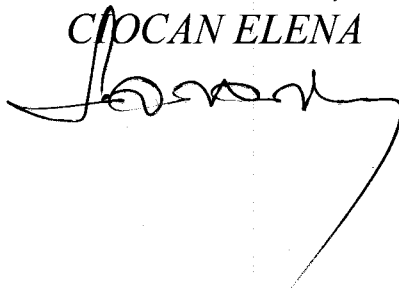 CIOCAN ELENA